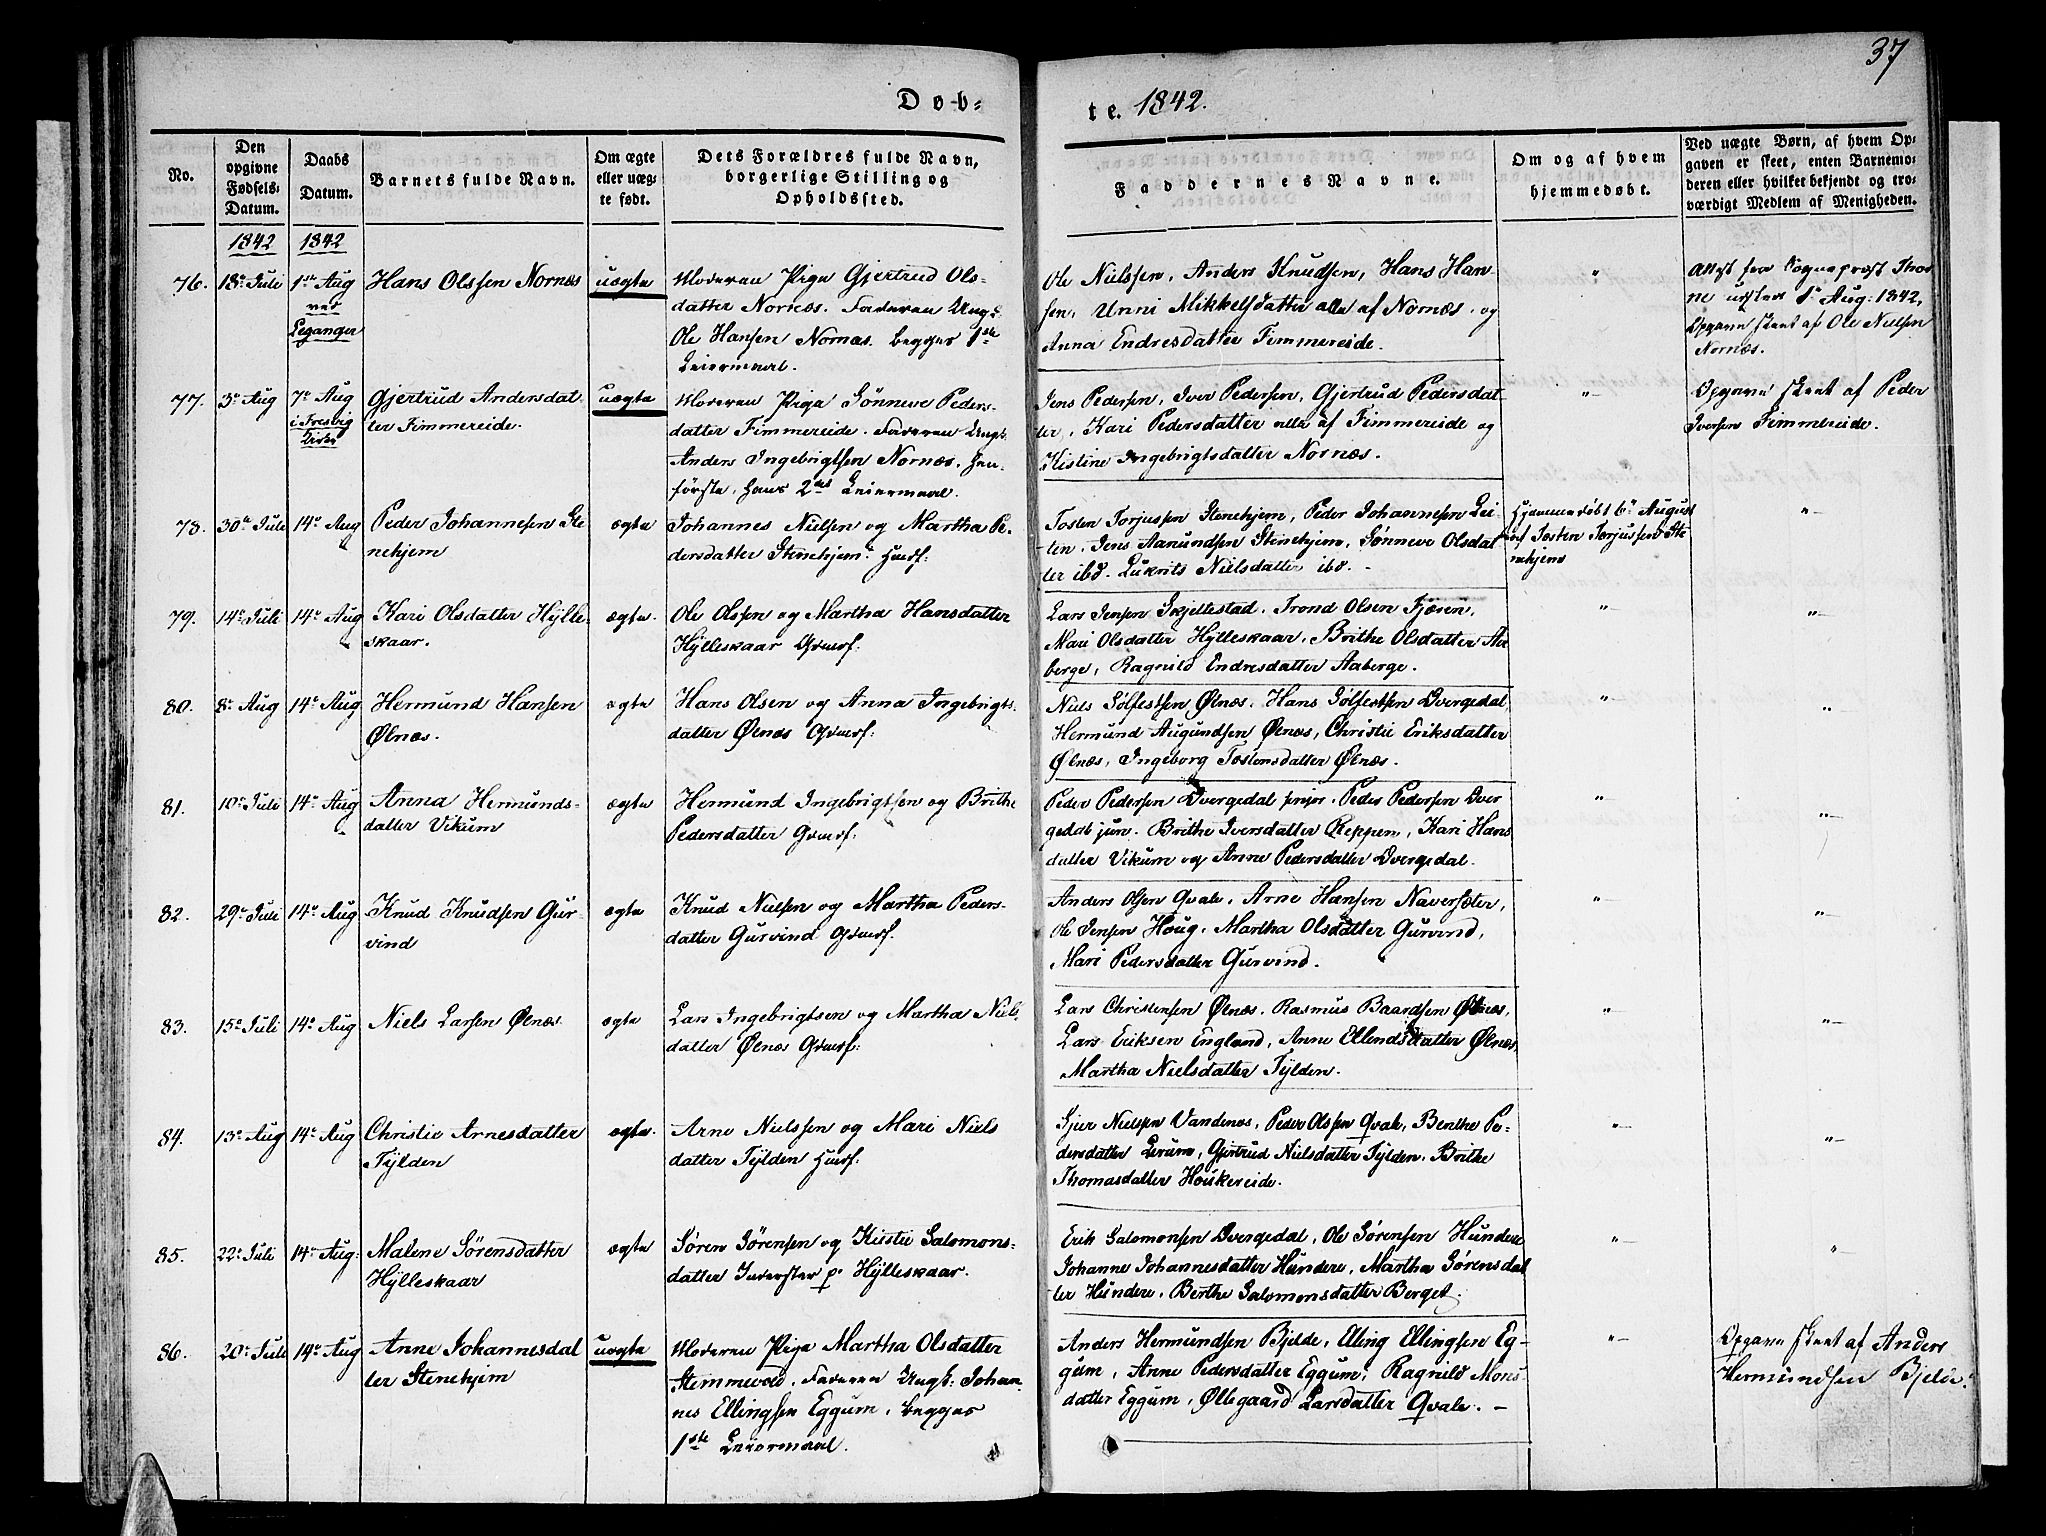 37
Døb=
te. 1842.
No.
Den opgivne Fødsels-Datum.
Daabs Datum.
Barnets fulde Navn.
Om ægte eller uægte født.
Dets Forældres fulde Navn, borgerlige Stilling og Opholdssted.
Faddernes Navne.
Om og af hvem hjemmedøbt.
Ved uægte Børn, af hvem Opgaven er skeet, enten Barnemoderen eller hvilket bekjendt og troværdigt Medlem af Menigheden.
1842 1842
76. 18de Juli 1ste Aug Hans Olssen Nornæs uægte Moderen Pige Gjertrud Ols-
ved datter Nornæs. Faderen Ungk.
Leganger Ole Hansen Nornæs. begges 1ste
Leiermaal.
Ole Nielssen, Anders Knudsen, Hans Han-
sen, Unni Mikkelsdatter alle af Nornæs, og
Anna Endresdatter Fimmereide.
"
Attest fra Sognepræst Thor
ne udsted 1e Aug: 1842,
Opgave skeet af Ole Nielsen
Nornæs.
77. 3e Aug 7e Aug Gjertrud Andersdat- uægte Moderen Pige Sönneve Peders-
i Fresvig ter Fimmereide. datter Fimmereide. Faderen Ungk.
Kirke Anders Ingebrigtsen Nornæs. Hen-
förste, hans 2det Leiermaal.
Jens Pedersen, Iver Pedersen, Gjertrud Pedersdat-
ter, Kari Pedersdatter alle af Fimmereide og
Kistine Ingebrigtsdatter Nornæs.
"
Opgave skeet af Peder
Iversen Fimmereide.
78. 30te Juli 14e Aug Peder Johannesen Ste ægte Johannes Nielsen og Martha Pe-
nehjem dersdatter Stenehjem Huusf:
Tosten Torjussen Stenehjem, Peder Johannesen Lei-
ten, Jens Aamundsen Stenehjem, Sønneve Olsdat
ter ibd. Lukrits Nielsdatter ibd.
Hjemmedøbt 6e August
af Tosten Torjussen Ste
nehjem
"
79. 14e Juli 14e Aug Kari Olsdatter Hylle- ægte. Ole Olssen og Martha Hansdatter
skaar. Hylleskaar Gbmf:
Lars Jensen Skjellestad, Trond Olsen Fjæren,
Mari Olsdatter Hylleskaar, Brithe Olsdatter Aa-
berge, Ragnild Endresdatter Aaberge.
"
"
80. 8e Aug 14e Aug Hermund Hansen ægte Hans Olsen og Anna Ingebrigts-
Ølnæs. datter Ølnæs Gbmf:
Niels Sølfestsen Ølnæs, Hans Sølfestsen Dvergedal
Hermund Augundsen Ølnæs, Christie Eriksdatter
Ølnæs, Ingeborg Tostensdatter Ølnæs.
"
"
81. 10e Juli 14e Aug Anna Hermunds- ægte Hermund Ingebrigtsen og Brithe
datter Vikum Pedersdatter Gbmf:
Peder Pedersen Dvergedal senior, Peder Pedersen Dver
gedal jun. Brithe Iversdatter Reppen, Kari Hans
datter Vikum og Anne Pedersdatter Dvergedal.
"
"
82. 29e Juli 14e Aug Knud Knudsen Gur- ægte Knud Nielsen og Martha Peders-
vind datter Gurvind Gbmf.
Anders Olsen Qvale, Arne Hansen Naversæter,
Ole Jensen Houg, Martha Olsdatter Gurvind,
Mari Pedersdatter Gurvind.
"
"
83. 15e Juli 14e Aug Niels Larsen Ølnæs ægte Lars Ingebrigtsen og Martha Niels
datter Ølnæs Gbmf:
Lars Christensen Ølnæs, Rasmus Baardsen Ølnæs,
Lars Eriksen England, Anne Ellendsdatter Ølnæs,
Martha Nielsdatter Tylden.
"
"
84. 13e Aug 14e Aug Christie Arnesdatter ægte. Arne Nielssen og Mari Niels
Tylden datter Tylden Huusf:
Sjur Nielsen Vandenes, Peder Olssen Qvale, Benthe Pe-
dersdatter Lerum, Gjertrud Nielsdatter Tylden, Brithe
Thomasdatter Houkereide.
"
"
85. 22e Juli 14e Aug: Malene Sörensdatter ægte Sören Sörensen og Kistie Salomons-
Hylleskaar datter Inderster p. Hylleskaar.
Erik Salomonsen Dvergedal, Ole Sörensen Hundere
Johanne Johannesdatter Hundere, Martha Sørensdat
ter Hundere, Berthe Salomonsdatter Berget.
"
"
86. 20e Juli 14e Aug Anne Johannesdat uægte Moderen Pige Martha Olsdatter
ter Stenehjem Stemmevold. Faderen Ungk: Johan-
nes Ellingsen Eggum, begges
1ste Leiermaal.
Anders Hermundsen Bjelde, Elling Ellingsen Eg-
gum, Anne Pedersdatter Eggum, Ragnild Mons-
datter Eggum, Øllegaard Larsdatter Qvale. –
"
Opgave skeet af Anders
Hermundsen Bjelde.